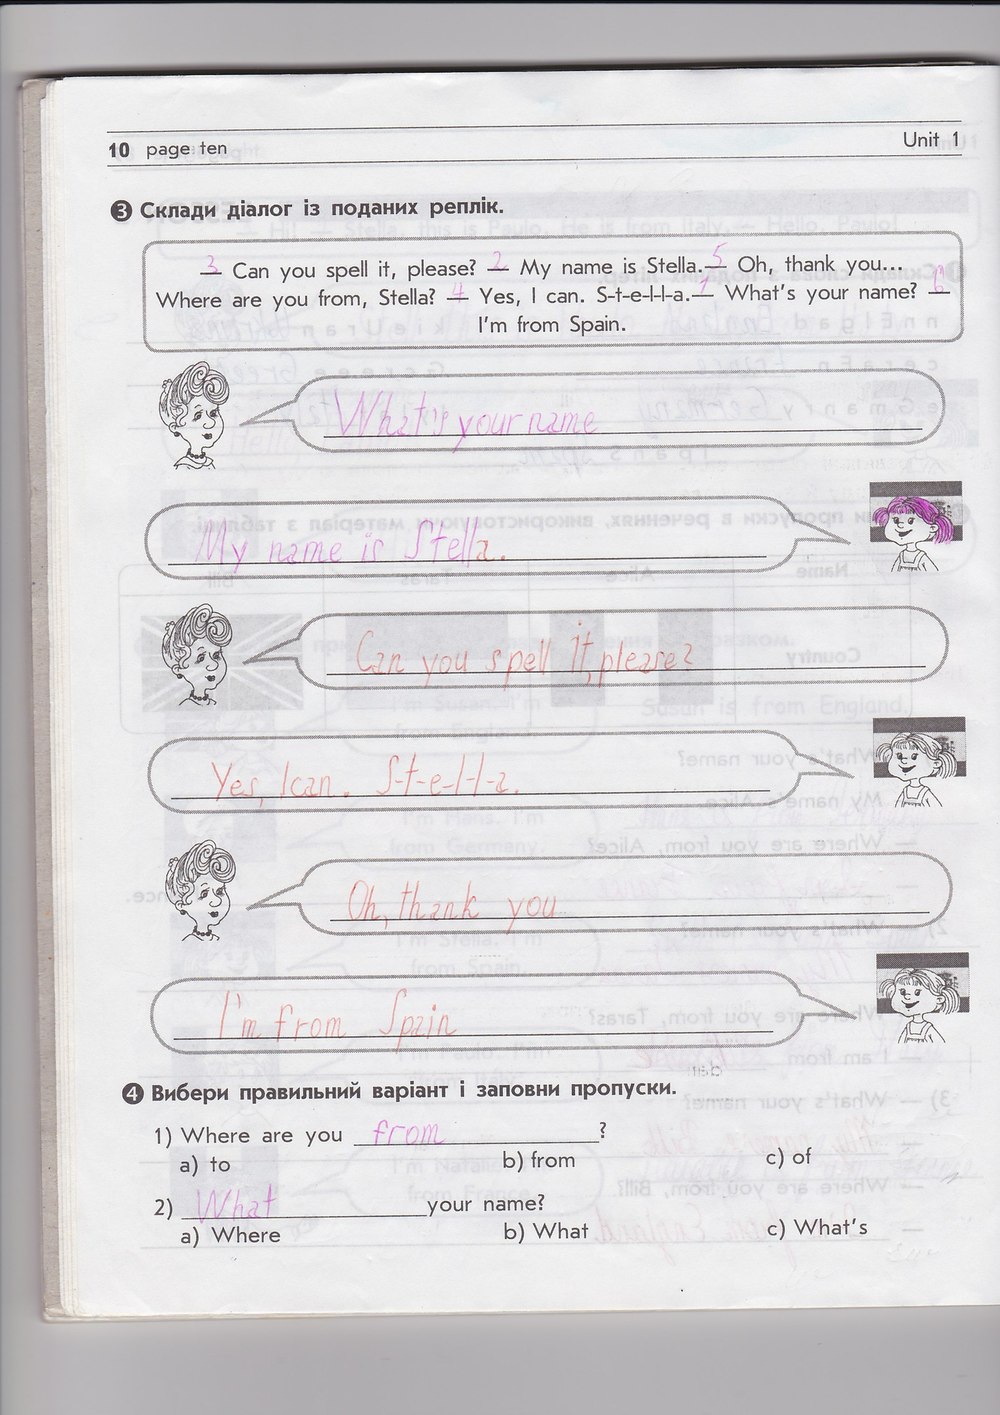 10 page ten
Unit 1
3 Склади діалог із поданих реплік.
3 Can you spell it, please? 2 My name is Stella. 5 Oh, thank you...
Where are you from, Stella? 4 Yes, I can. S-t-e-l-l-a. 1 What's your name? 6
I'm from Spain.
What's your name
My name is Stella.
Can you spell it, please?
Yes, I can. S-t-e-l-l-a.
Oh, thank you
I'm from Spain
4 Вибери правильний варіант і заповни пропуски.
1) Where are you from ?
a) to b) from c) of
2) What your name?
a) Where b) What c) What's